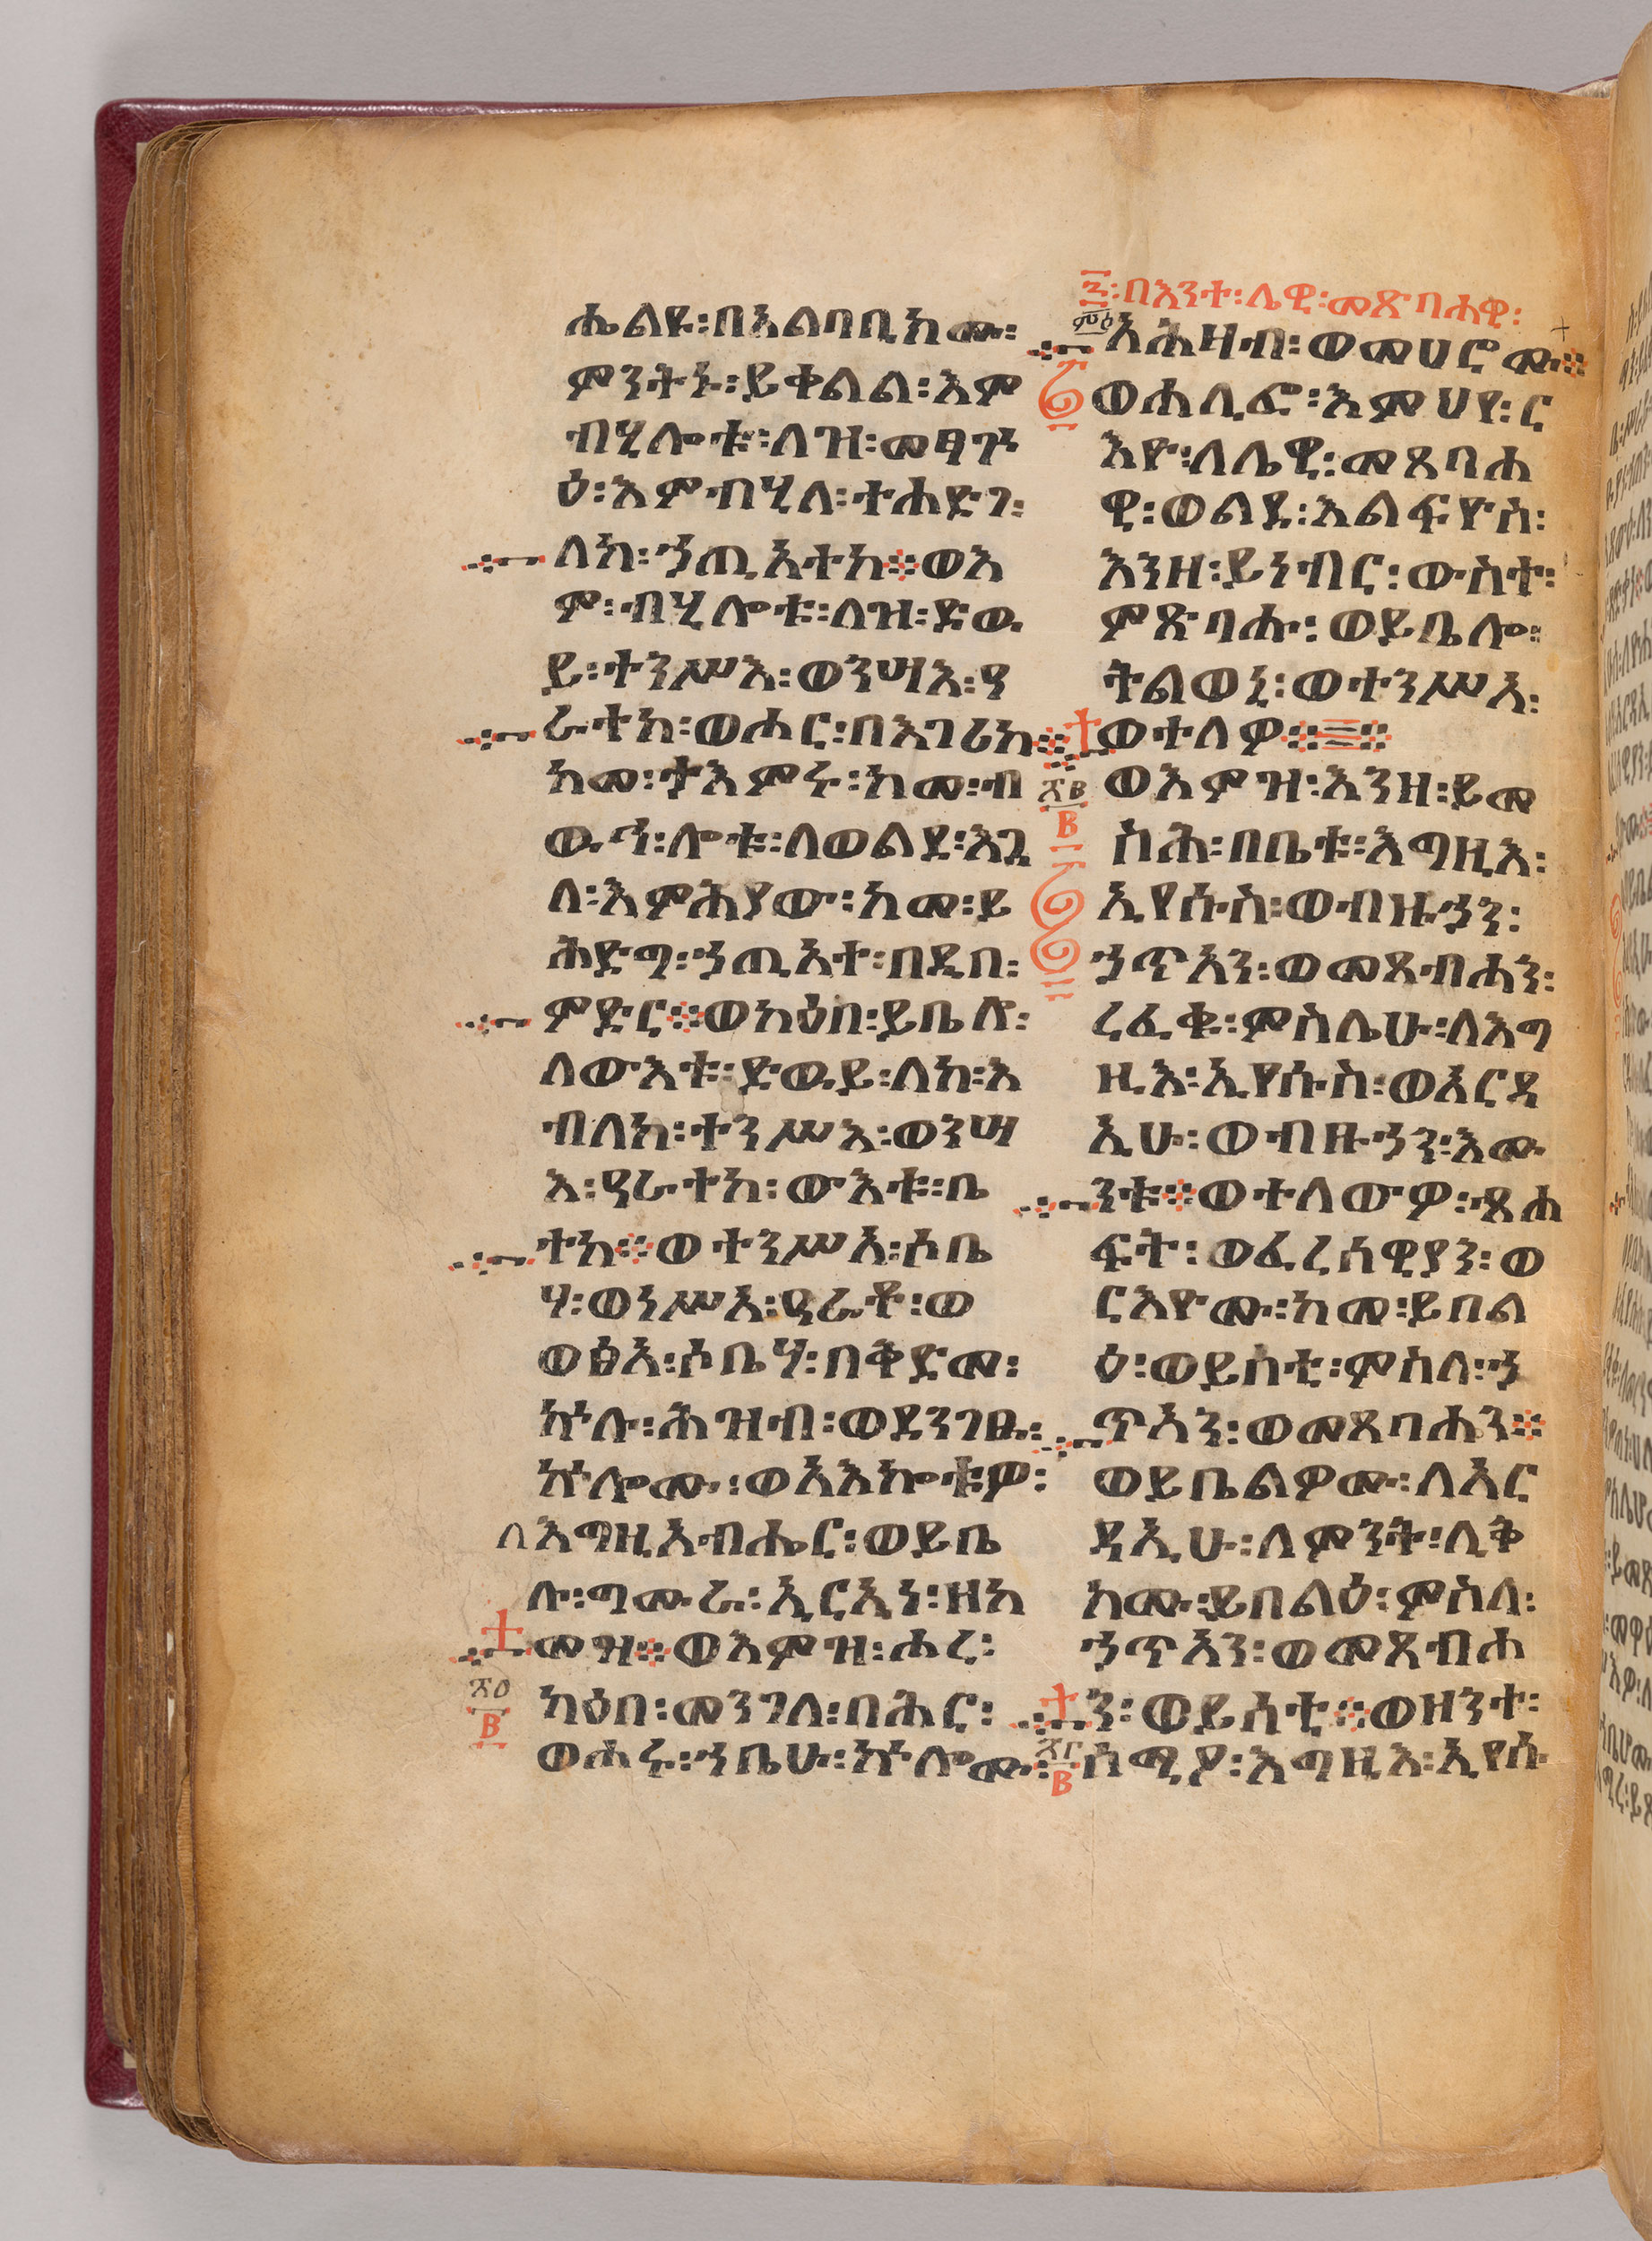 ሔልዩ፡በአልባቢክሙ፡
ምንትኑ፡ይቀልል፡እም
ብሂሎቱ፡ለዝ፡መፃጕ
ዕ፡እምብሂለ፡ተሐድገ፡
ለከ፡ኃጢአተከ፨ወእ
ም፡ብሂሎቱ፡ለዝ፡ድዉ
ይ፡ተንሥእ፡ወንሣእ፡ዓ
ራተከ፡ወሖር፡በእገሪከ፨
ከመ፡ታእምሩ፡ከመ፡ብ
ዉሕ፡ሎቱ፡ለወልደ፡እጓ
ለ፡እምሕያው፡ከመ፡ይ
ሕድግ፡ኃጢአተ፡በዲበ፡
ምድር፨ወካዕበ፡ይቤሎ፡
ለውእቱ፡ድዉይ፡ለከ፡እ
ብለከ፡ተንሥእ፡ወንሣ
እ፡ዓራተከ፡ውእቱ፡ቤ
ተከ፨ወተንሥአ፡ሶቤ
ሃ፡ወነሥአ፡ዓራቶ፡ወ
ወፅአ፡ሶቤሃ፡በቅድመ፡
ኵሉ፡ሕዝብ፡ወደንገፁ፡
ኵሎሙ፡ወአእኰቱዎ፡
ለእግዚአብሔር፡ወይቤ
ሉ፡ግሙራ፡ኢርኢነ፡ዘከ
መዝ፨ወእምዝ፡ሖረ፡
፳፬
፪
ካዕበ፡መንገለ፡በሕር፡
ወሖሩ፡ኀቤሁ፡ኵሎሙ፡
፯፡በእንተ፡ሌዊ፡መጽባሐዊ፡
ምዕ
አሕዛብ፡ወመሀሮሙ፨
ወኀሊፎ፡እምህየ፡ር
እዮ፡ለሌዊ፡መጸባሐ
ዊ፡ወልደ፡እልፍዮስ፡
እንዘ፡ይነብር፡ውስተ፡
ምጽባሑ፡ወይቤሎ፡
ትልወኒ፡ወተንሥአ፡
ወተለዎ፨
ወእምዝ፡እንዘ፡ይመ
ስሕ፡በቤቱ፡እግዚእ፡
ኢየሱስ፡ወብዙኃን፡
ኃጥአን፡ወመጸብሓን፡
ረፈቁ፡ምስሌሁ፡ለእግ
ዚእ፡ኢየሱስ፡ወአርዳ
ኢሁ፡ወብዙኃን፡እሙ
ንቱ፨ወተለውዎ፡ጸሐ
ፍት፡ወፈሪሳዊያን፡ወ
ርእዮሙ፡ከመ፡ይበል
ዕ፡ወይሰቲ፡ምስለ፡ኃ
ጥአን፡ወመጸባሐን፨
ወይቤልዎሙ፡ለአር
ዳኢሁ፡ለምንት፡ሊቅ
ክሙ፡ይበልዕ፡ምስለ፡
ኃጥአን፡ወመጸብሐ
ን፡ወይሰቲ፨ወዘንተ፡
ሰሚዖ፡እግዚእ፡ኢየሱ